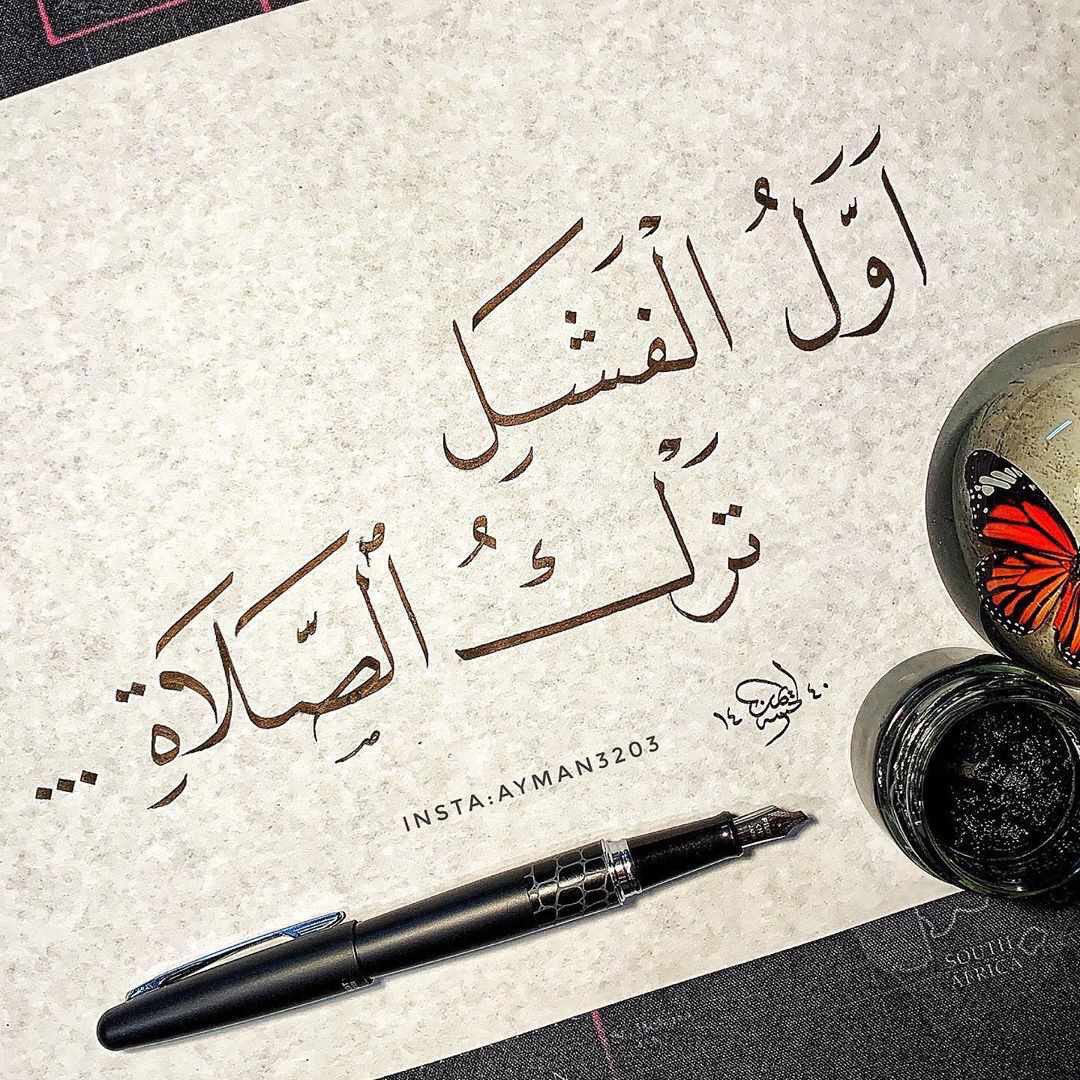 أَوَّلُ الْفَشَلِ
تَرْكُ الصَّلَاةِ...
١٤٤٠
INSTA:AYMAN3203
SOUTH
AFRICA